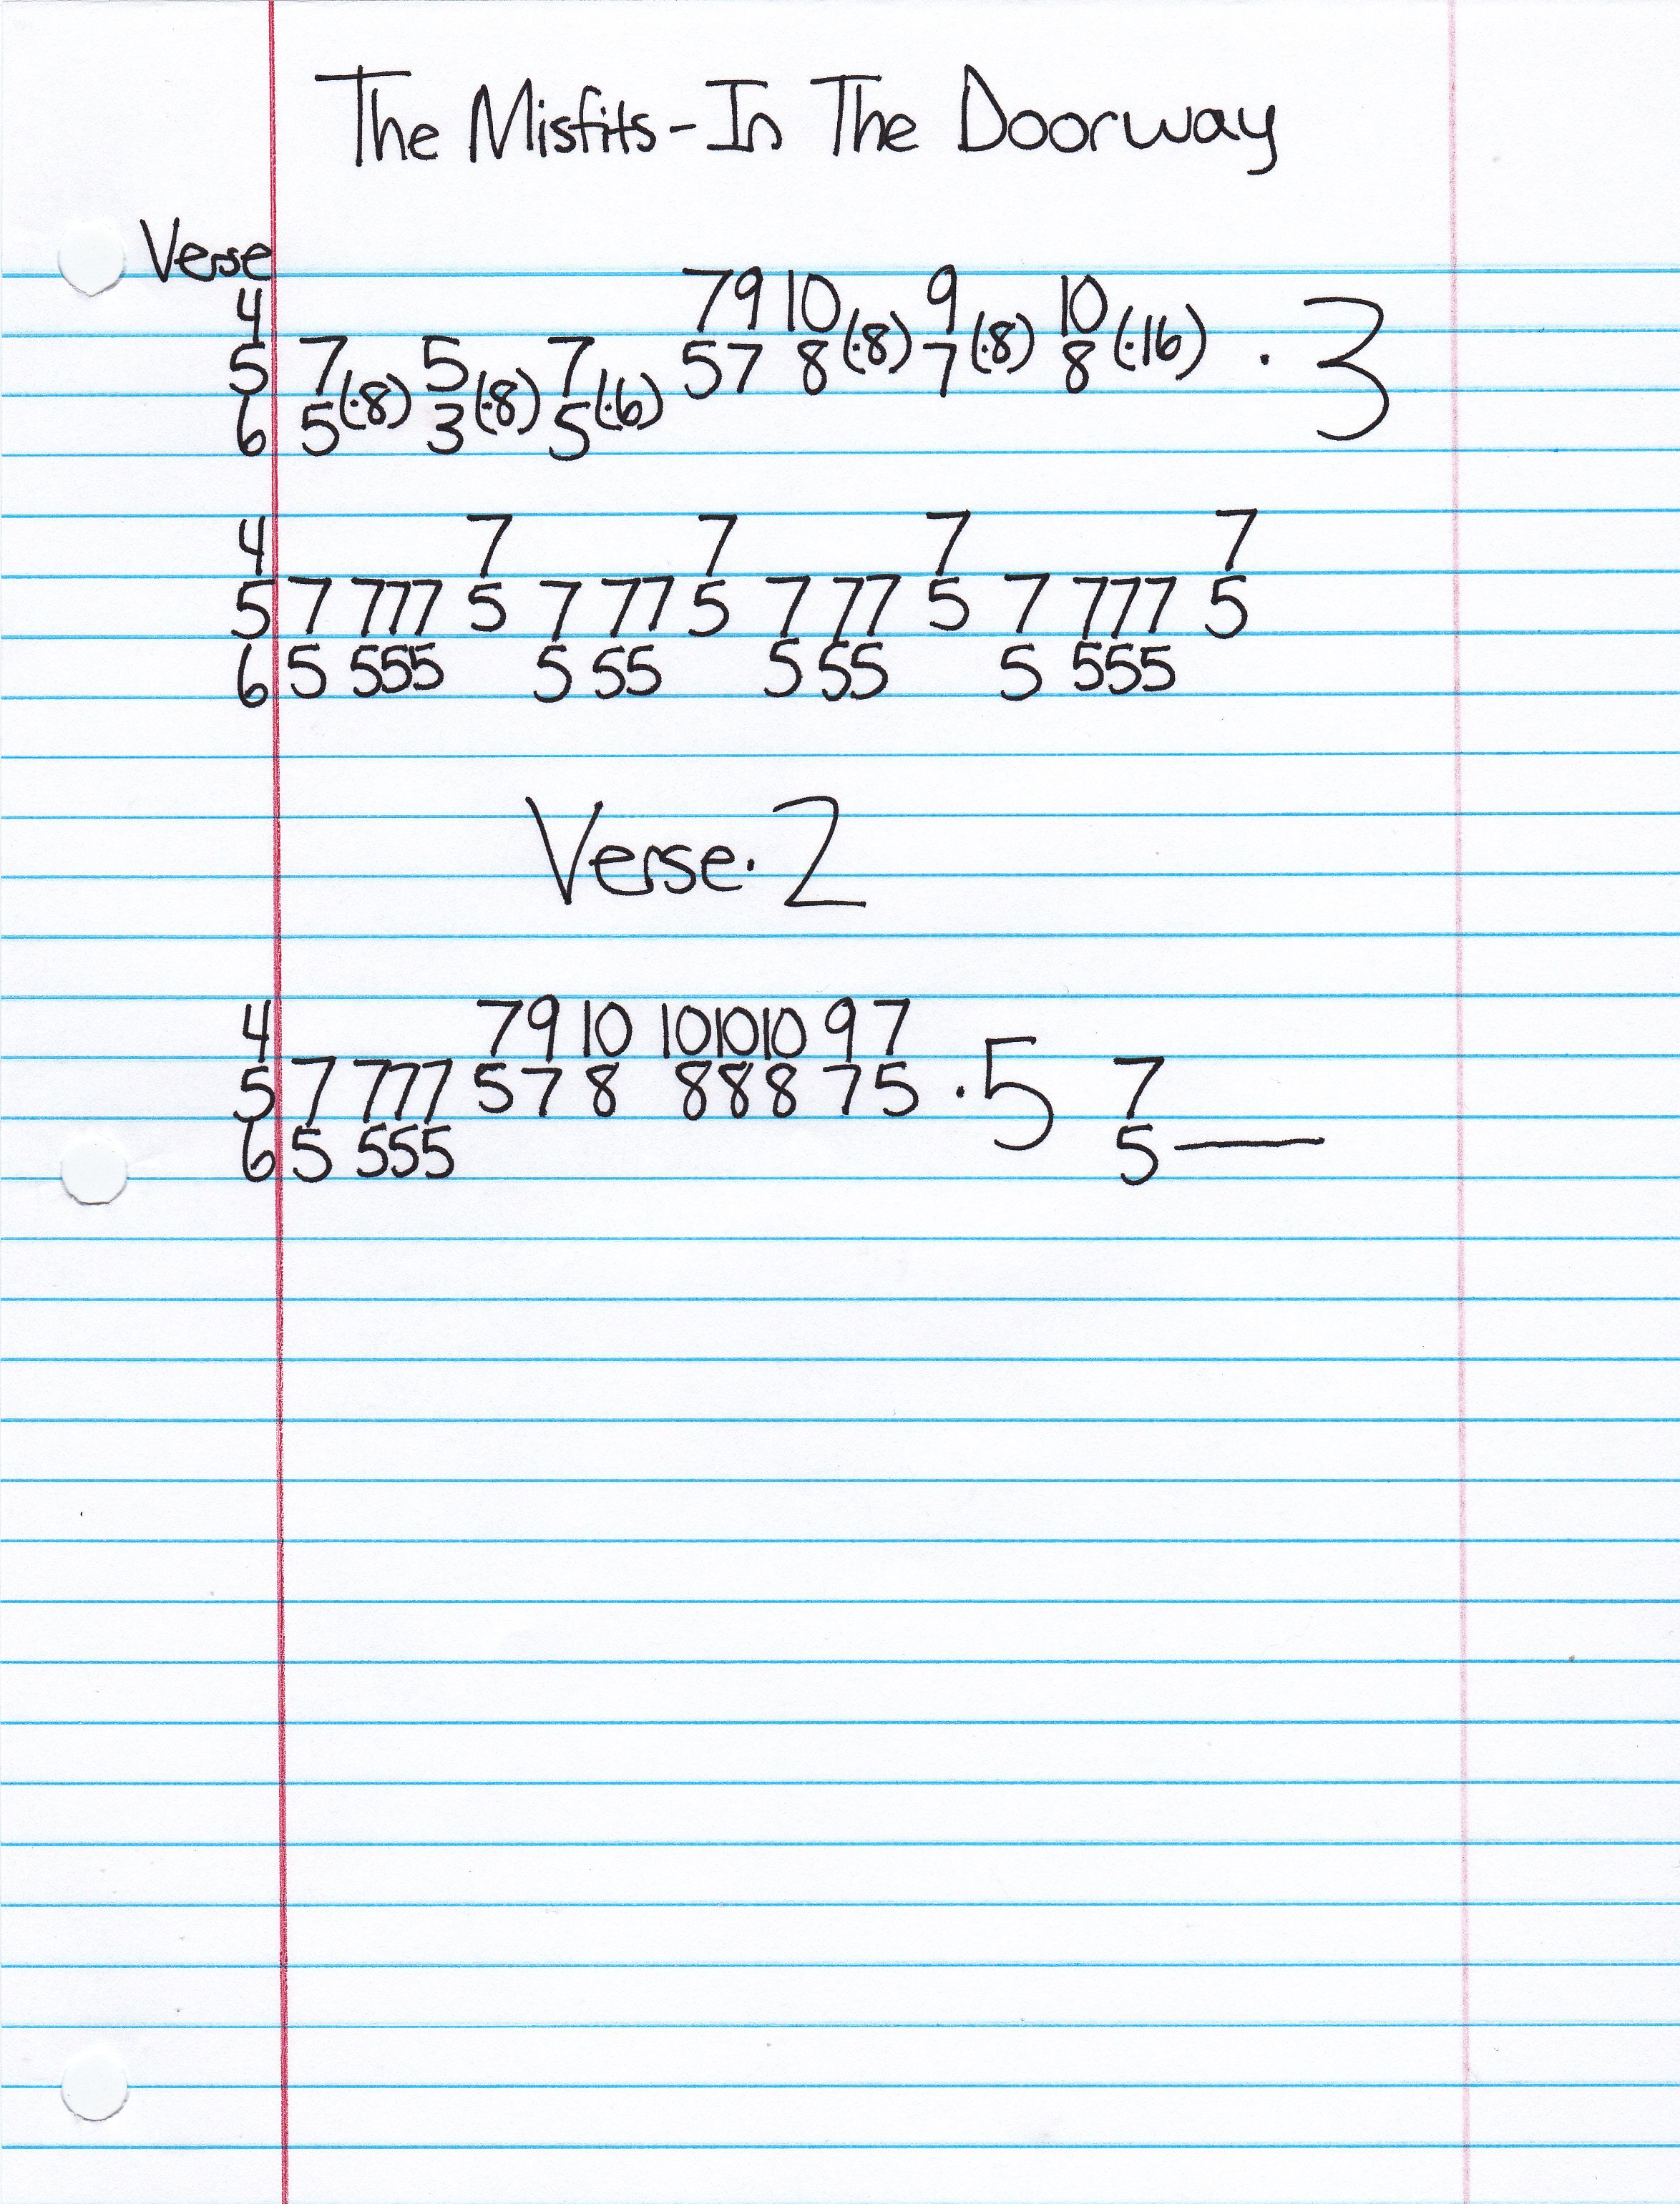 The Misfits - In The Doorway
Verse
4 79 10 9 10
5 7 5 7 57 8 (·8) 7 (·8) 8 (·16) · 3
6 5 (·8) 3 (·8) 5 (·6)
4 7 7 7 7
5 7 777 5 7 77 5 7 77 5 7 777 5
6 5 555 5 55 5 55 5 555
Verse · 2
4 79 10 101010 97
5 7 777 57 8 888 75 · 5 7
6 5 555 5 —